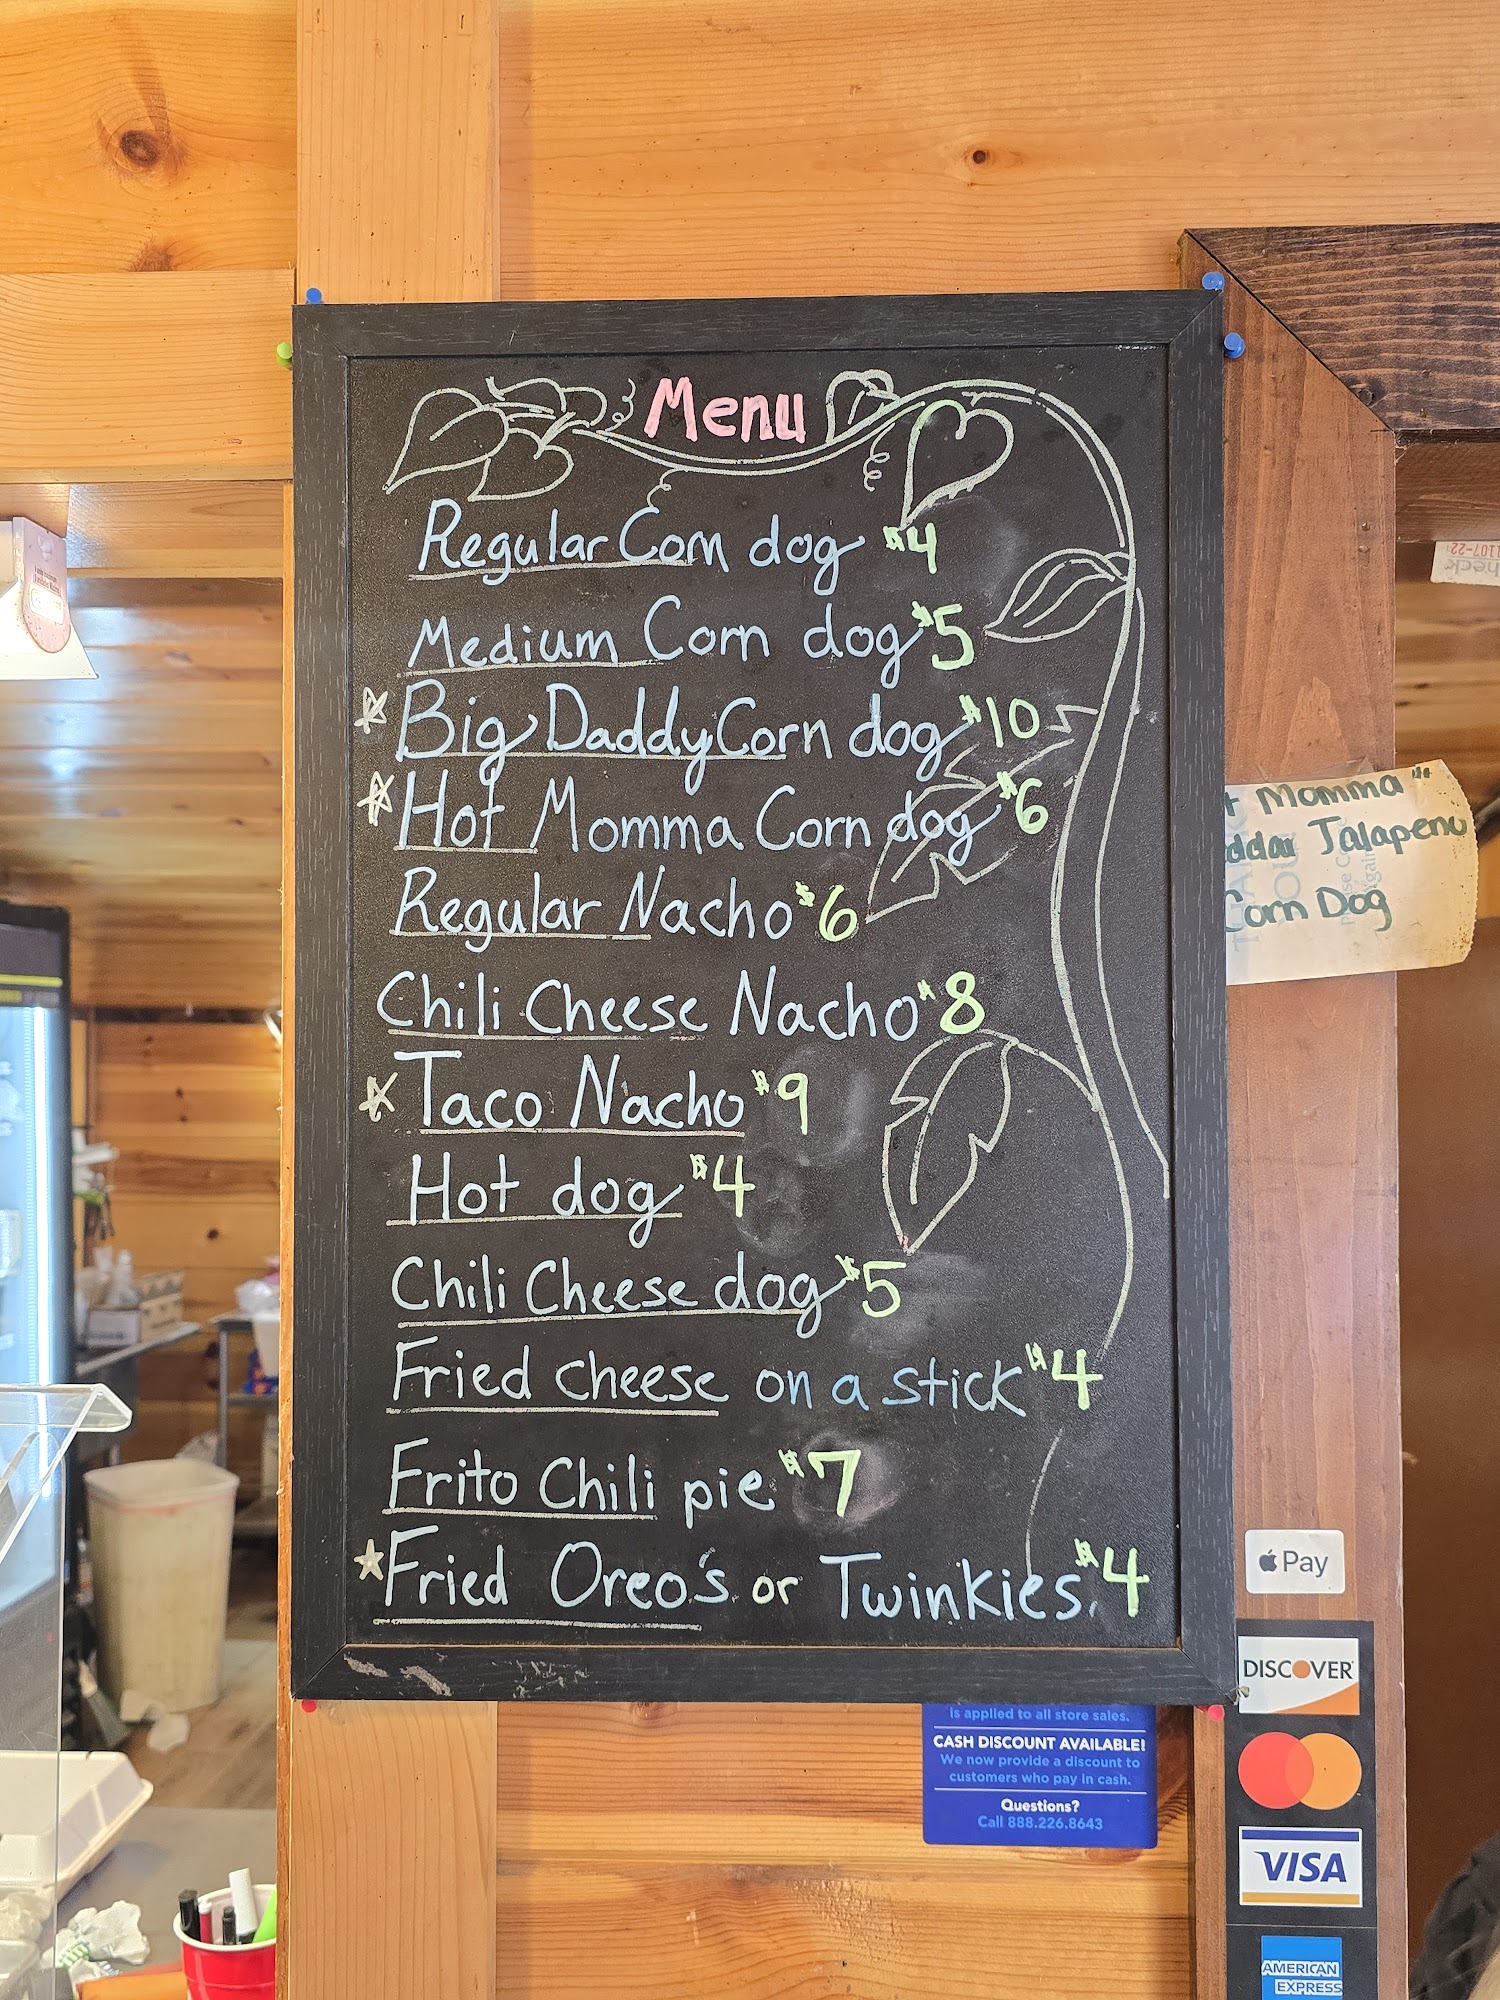 Menu
Regular Corn dog $4
Medium Corn dog $5
Big Daddy Corn dog $10
Hot Momma Corn dog $6
Regular Nacho $6
Chili Cheese Nacho $8
Taco Nacho $9
Hot dog $4
Chili Cheese dog $5
Fried cheese on a stick $4
Frito Chili pie $7
Fried Oreo's or Twinkies. $4
Momma"
Jalapeno
Corn Dog
is applied to all store sales.
CASH DISCOUNT AVAILABLE!
We now provide a discount to
customers who pay in cash.
Questions?
Call 888.226.8643
Pay
DISCOVER
VISA
AMERICAN
EXPRESS